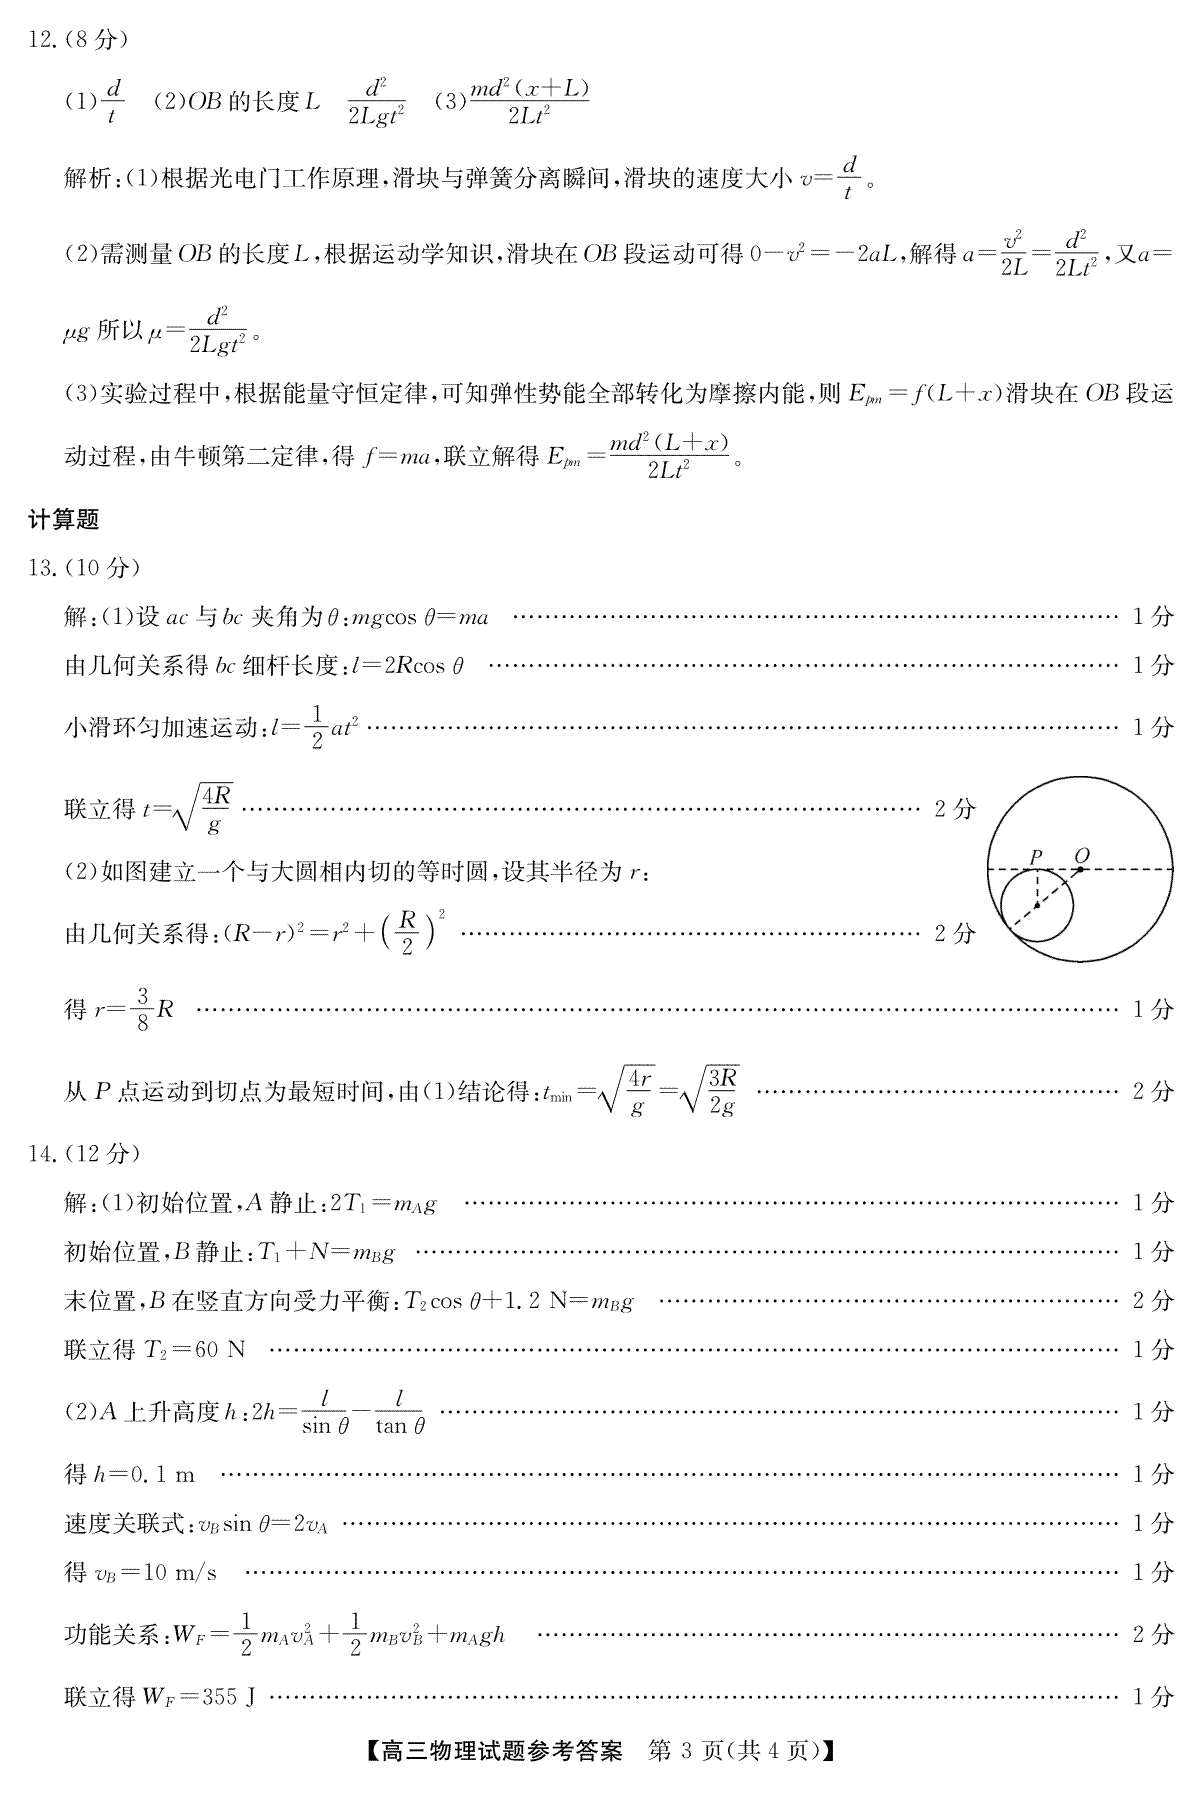 12.(8 分)
(1)d/t (2)OB 的长度 L d²/2Lgt² (3)md²(x+L)/2Lt²
解析:(1)根据光电门工作原理,滑块与弹簧分离瞬间,滑块的速度大小 v=d/t。
(2)需测量 OB 的长度 L,根据运动学知识,滑块在 OB 段运动可得 0−v²=−2aL,解得 a=v²/2L=d²/2Lt²,又a=
μg 所以 μ=d²/2Lgt²。
(3)实验过程中,根据能量守恒定律,可知弹性势能全部转化为摩擦内能,则 Eₚₘ=f(L+x)滑块在 OB 段运
动过程,由牛顿第二定律,得 f=ma,联立解得 Eₚₘ=md²(L+x)/2Lt²。
计算题
13.(10 分)
解:(1)设 ac 与 bc 夹角为 θ:mgcos θ=ma …… 1 分
由几何关系得 bc 细杆长度:l=2Rcos θ …… 1 分
小滑环匀加速运动:l=1/2 at² …… 1 分
联立得 t=√(4R/g) …… 2 分
(2)如图建立一个与大圆相内切的等时圆,设其半径为 r:
P O
由几何关系得:(R−r)²=r²+(R/2)² …… 2 分
得 r=3/8 R …… 1 分
从 P 点运动到切点为最短时间,由(1)结论得:t_min=√(4r/g)=√(3R/2g) …… 2 分
14.(12 分)
解:(1)初始位置,A 静止:2T₁=m_A g …… 1 分
初始位置,B 静止:T₁+N=m_B g …… 1 分
末位置,B 在竖直方向受力平衡:T₂cos θ+1.2 N=m_B g …… 2 分
联立得 T₂=60 N …… 1 分
(2)A 上升高度 h:2h=l/sin θ−l/tan θ …… 1 分
得 h=0.1 m …… 1 分
速度关联式:v_B sin θ=2v_A …… 1 分
得 v_B=10 m/s …… 1 分
功能关系:W_F=1/2 m_A v_A²+1/2 m_B v_B²+m_A gh …… 2 分
联立得 W_F=355 J …… 1 分
【高三物理试题参考答案 第 3 页(共 4 页)】